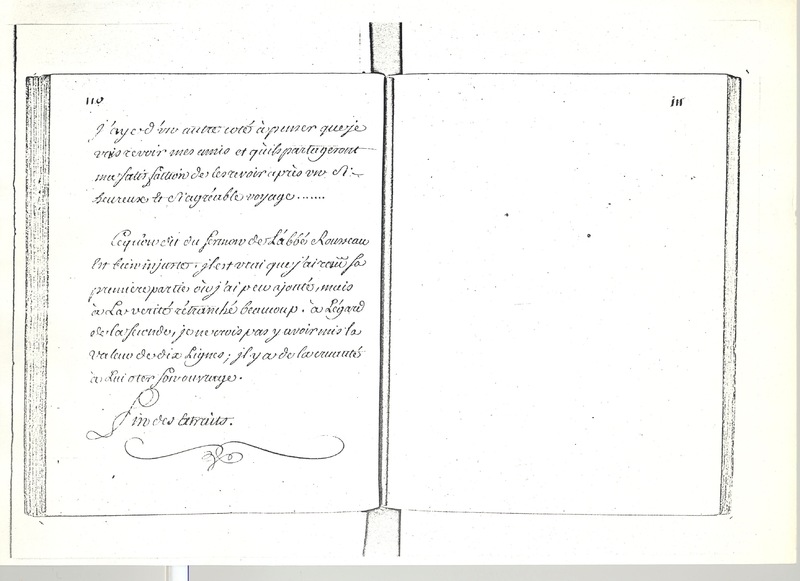 110
J'aye d'un autre coté à penser que je
vais revoir mes amis et qu'ils partageront
ma satisfaction de les revoir après un si
heureux et si agréable voyage.......
Ce qu'on dit du sermon de L'abbé Rousseau
Est bien injuste. jl est vrai que j'ai revû sa
premiere partie où j'ai peu ajouté, mais
à La verité retranché beaucoup. à L'égard
de la seconde, je ne crois pas y avoir mis la
valeur de dix Lignes; jl y a de la cruauté
à Lui oter son ouvrage.
Fin des Extraits.
111